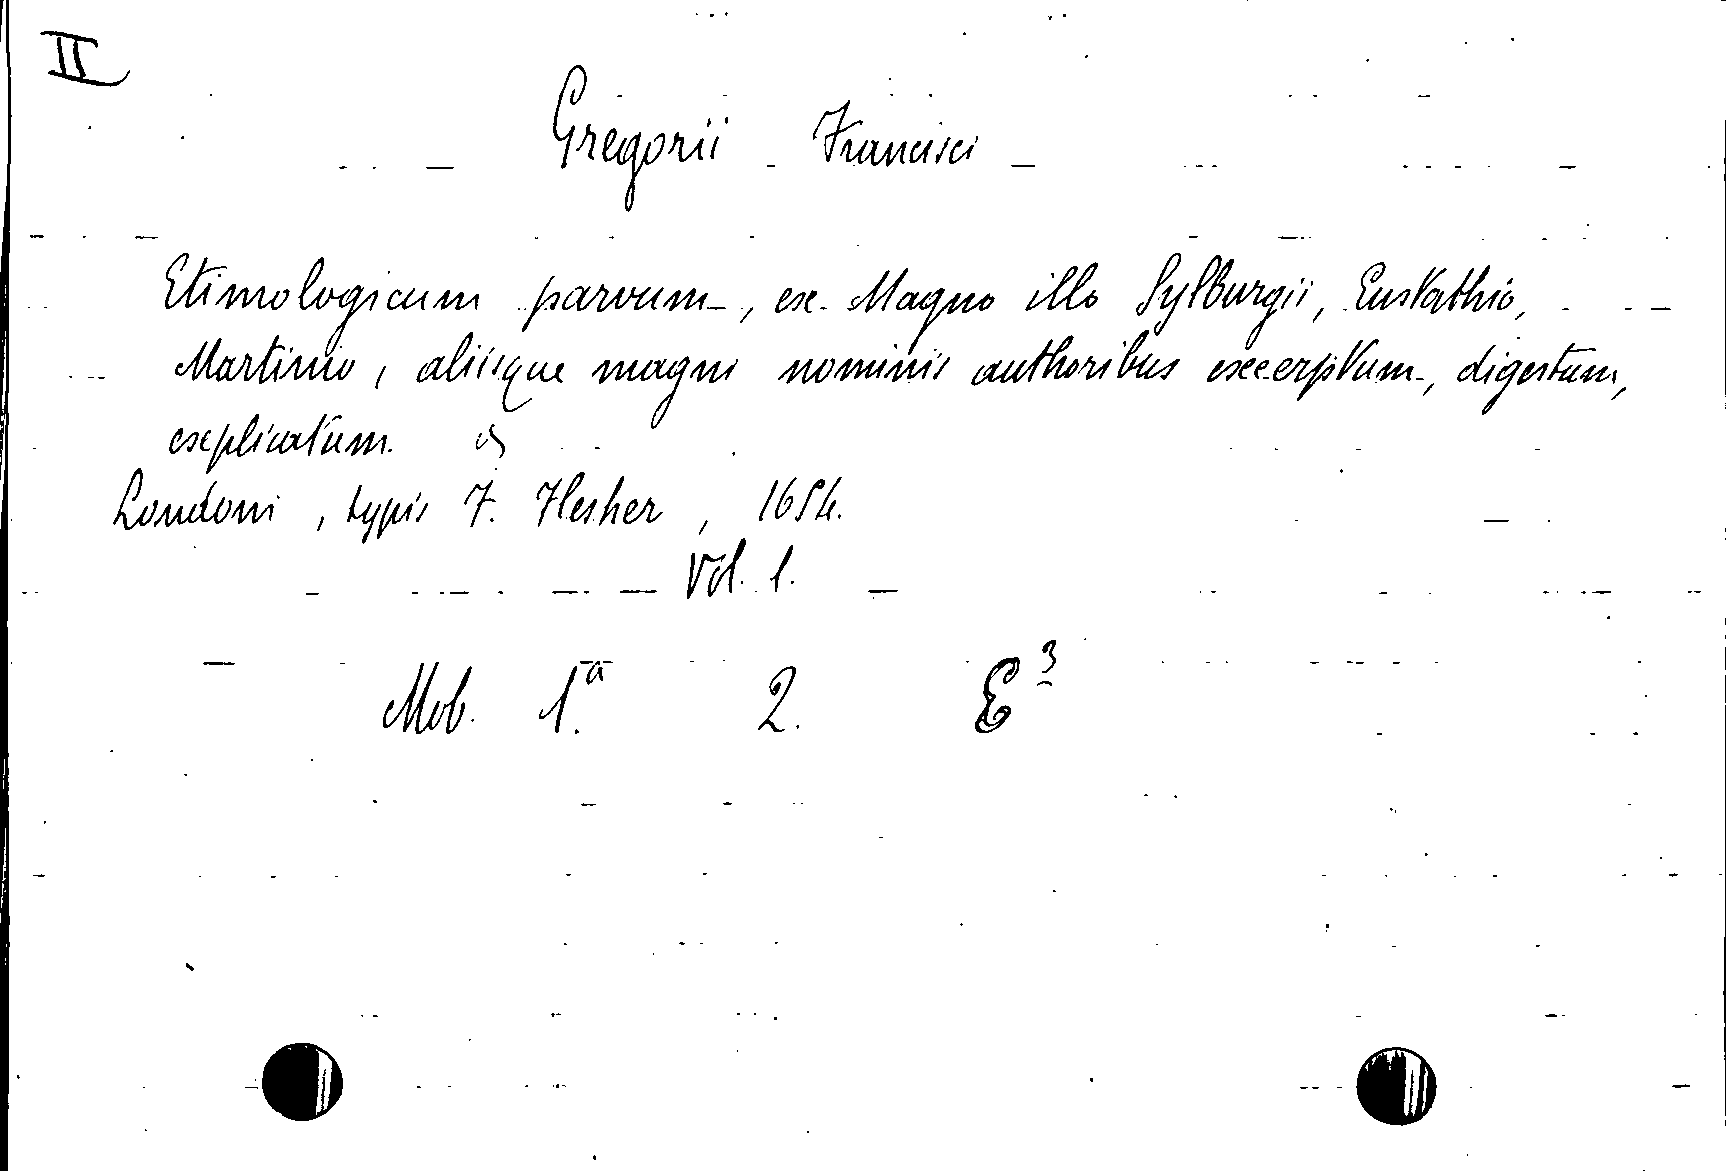 II
Gregorii Francisci
Etimologicum parvum, ex Magno illo Sylburgii, Eustathio,
Martinio, aliisque magni nominis authoribus excerptum, digestum,
explicatum.
Londoni, typis F. Flesher, 1654.
Vol. 1.
Mob. 1.a 2. E3